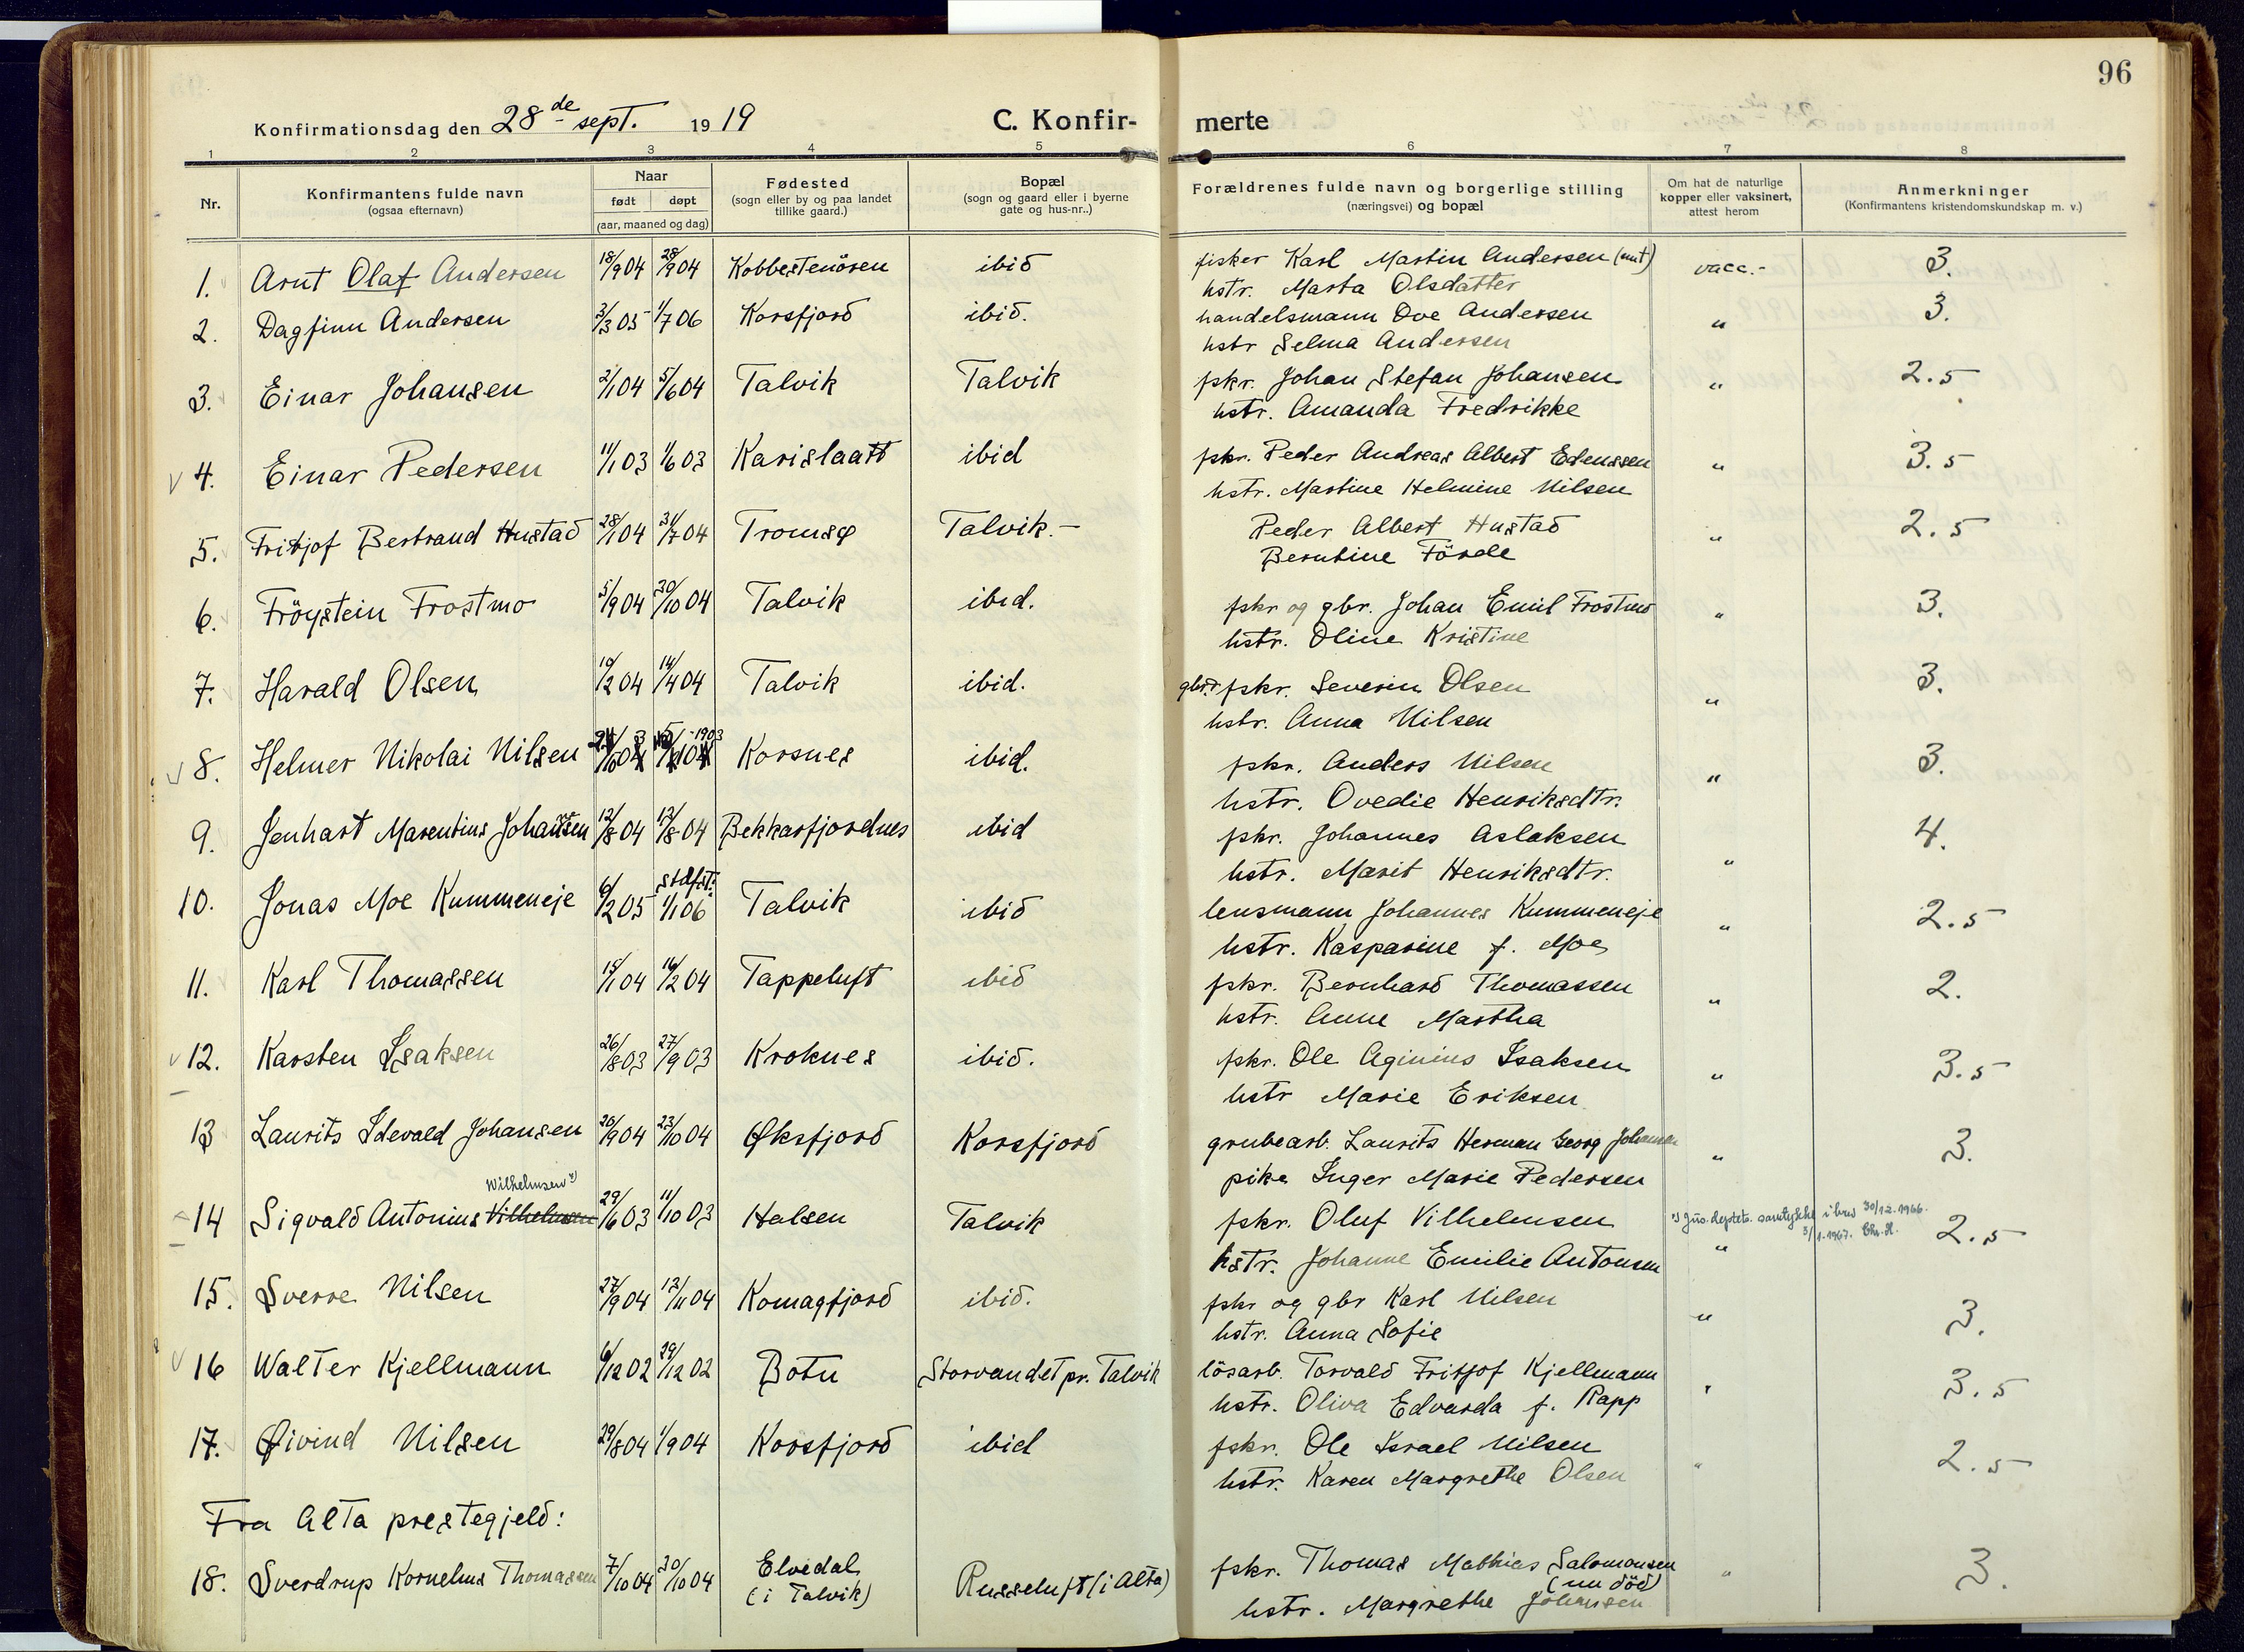 96
Konfirmationsdag den 28de sept. 1919 C. Konfir- merte
1 2 3 4 5 6 7 8
Nr. Konfirmantens fulde navn (ogsaa efternavn) Naar født døpt (aar, maaned og dag) Fødested (sogn eller by og paa landet tillike gaard.) Bopæl (sogn og gaard eller i byerne gate og hus-nr..) Forældrenes fulde navn og borgerlige stilling (næringsvei) og bopæl Om hat de naturlige kopper eller vaksinert, attest herom Anmerkninger (Konfirmantens kristendomskundskap m. v.)
1. Arnt Olaf Andersen 18/9 04 28/9 04 Kobbestenören ibid fisker Karl Martin Andersen vacc.- 3.
hstr. Marta Olsdatter
2. Dagfinn Andersen 3/3 05 1/7 06 Korsfjord ibid. handelsmann Ove Andersen " 3.
hstr Selma Andersen
3. Einar Johansen 2/1 04 5/6 04 Talvik Talvik fskr. Johan Stefan Johansen " 2.5
hstr. Amanda Fredrikke
4. Einar Pedersen 11/1 03 1/6 03 Karislaatt ibid fskr. Peder Andreas Albert Edenssen " 3.5
hstr. Martine Helmine Nilsen
5. Fritjof Bertrand Hustad 28/1 04 31/7 04 Tromsø Talvik.- Peder Albert Hustad " 2.5
Berntine Förde
6. Fröystein Frostmo 5/9 04 30/10 04 Talvik ibid. fskr og gbr. Johan Emil Frostmo " 3.
hstr. Oline Kristine
7. Harald Olsen 10/2 04 14/4 04 Talvik ibid. fskr. Severin Olsen " 3.
hstr. Anna Nilsen
8. Helmer Nikolai Nilsen 1903 Korsnes ibid. fskr. Anders Nilsen " 3.
hstr. Ovedie Henriksdtr.
9. Jenhart Marentius Johansen 12/8 04 12/8 04 Bekkarfjordnes ibid fskr. Johannes Aslaksen " 4.
hstr. Marit Henriksdtr.
10. Jonas Moe Kummeneje 6/2 05 stdfst: 1/1 06 Talvik ibid lensmann Johannes Kummeneje " 2.5
hstr. Kasparine f. Moe
11. Karl Thomassen 15/1 04 16/2 04 Tappeluft ibid fskr. Bernhard Thomassen " 2.
hstr. Anne Martha
12. Karsten Isaksen 26/8 03 27/9 03 Kroknes ibid. fskr. Ole Aginius Isaksen " 3.5
hstr Marie Eriksen
13 Laurits Idevald Johansen 20/9 04 23/10 04 Øksfjord Korsfjord grubearb. Laurits Herman Georg Johansen " 3.
pike Inger Marie Pedersen
Wilhelmsen x)
14 Sigvald Antonius Vilhelmsen 29/6 03 11/10 03 Halsen Talvik fskr. Oluf Vilhelmsen x) Jus. deptets. samtykke i brev 30/12.1966. 2.5
3/1-1967. Chr. H.
hstr. Johanne Emilie Antonsen "
15. Sverre Nilsen 27/9 04 12/11 04 Komagfjord ibid. fskr og gbr Karl Nilsen " 3.
hstr. Anna Sofie
16 Walter Kjellmann 6/12 02 29/12 02 Botn Storvandet pr. Talvik lösarb. Torvald Fritjof Kjellmann " 3.5
hstr. Oliva Edvarda f. Rapp
17. Øivind Nilsen 29/8 04 1/9 04 Korsfjord ibid fskr. Ole Israel Nilsen " 2.5
hstr. Karen Margrethe Olsen
Fra Alta prestegjeld:
18. Sverdrup Kornelius Thomassen 7/10 04 30/10 04 Elvedal (i Talvik) Russeluft (i Alta) fskr. Thomas Mathias Salomonsen (nu död) " 3.
hstr. Margrethe Johansen